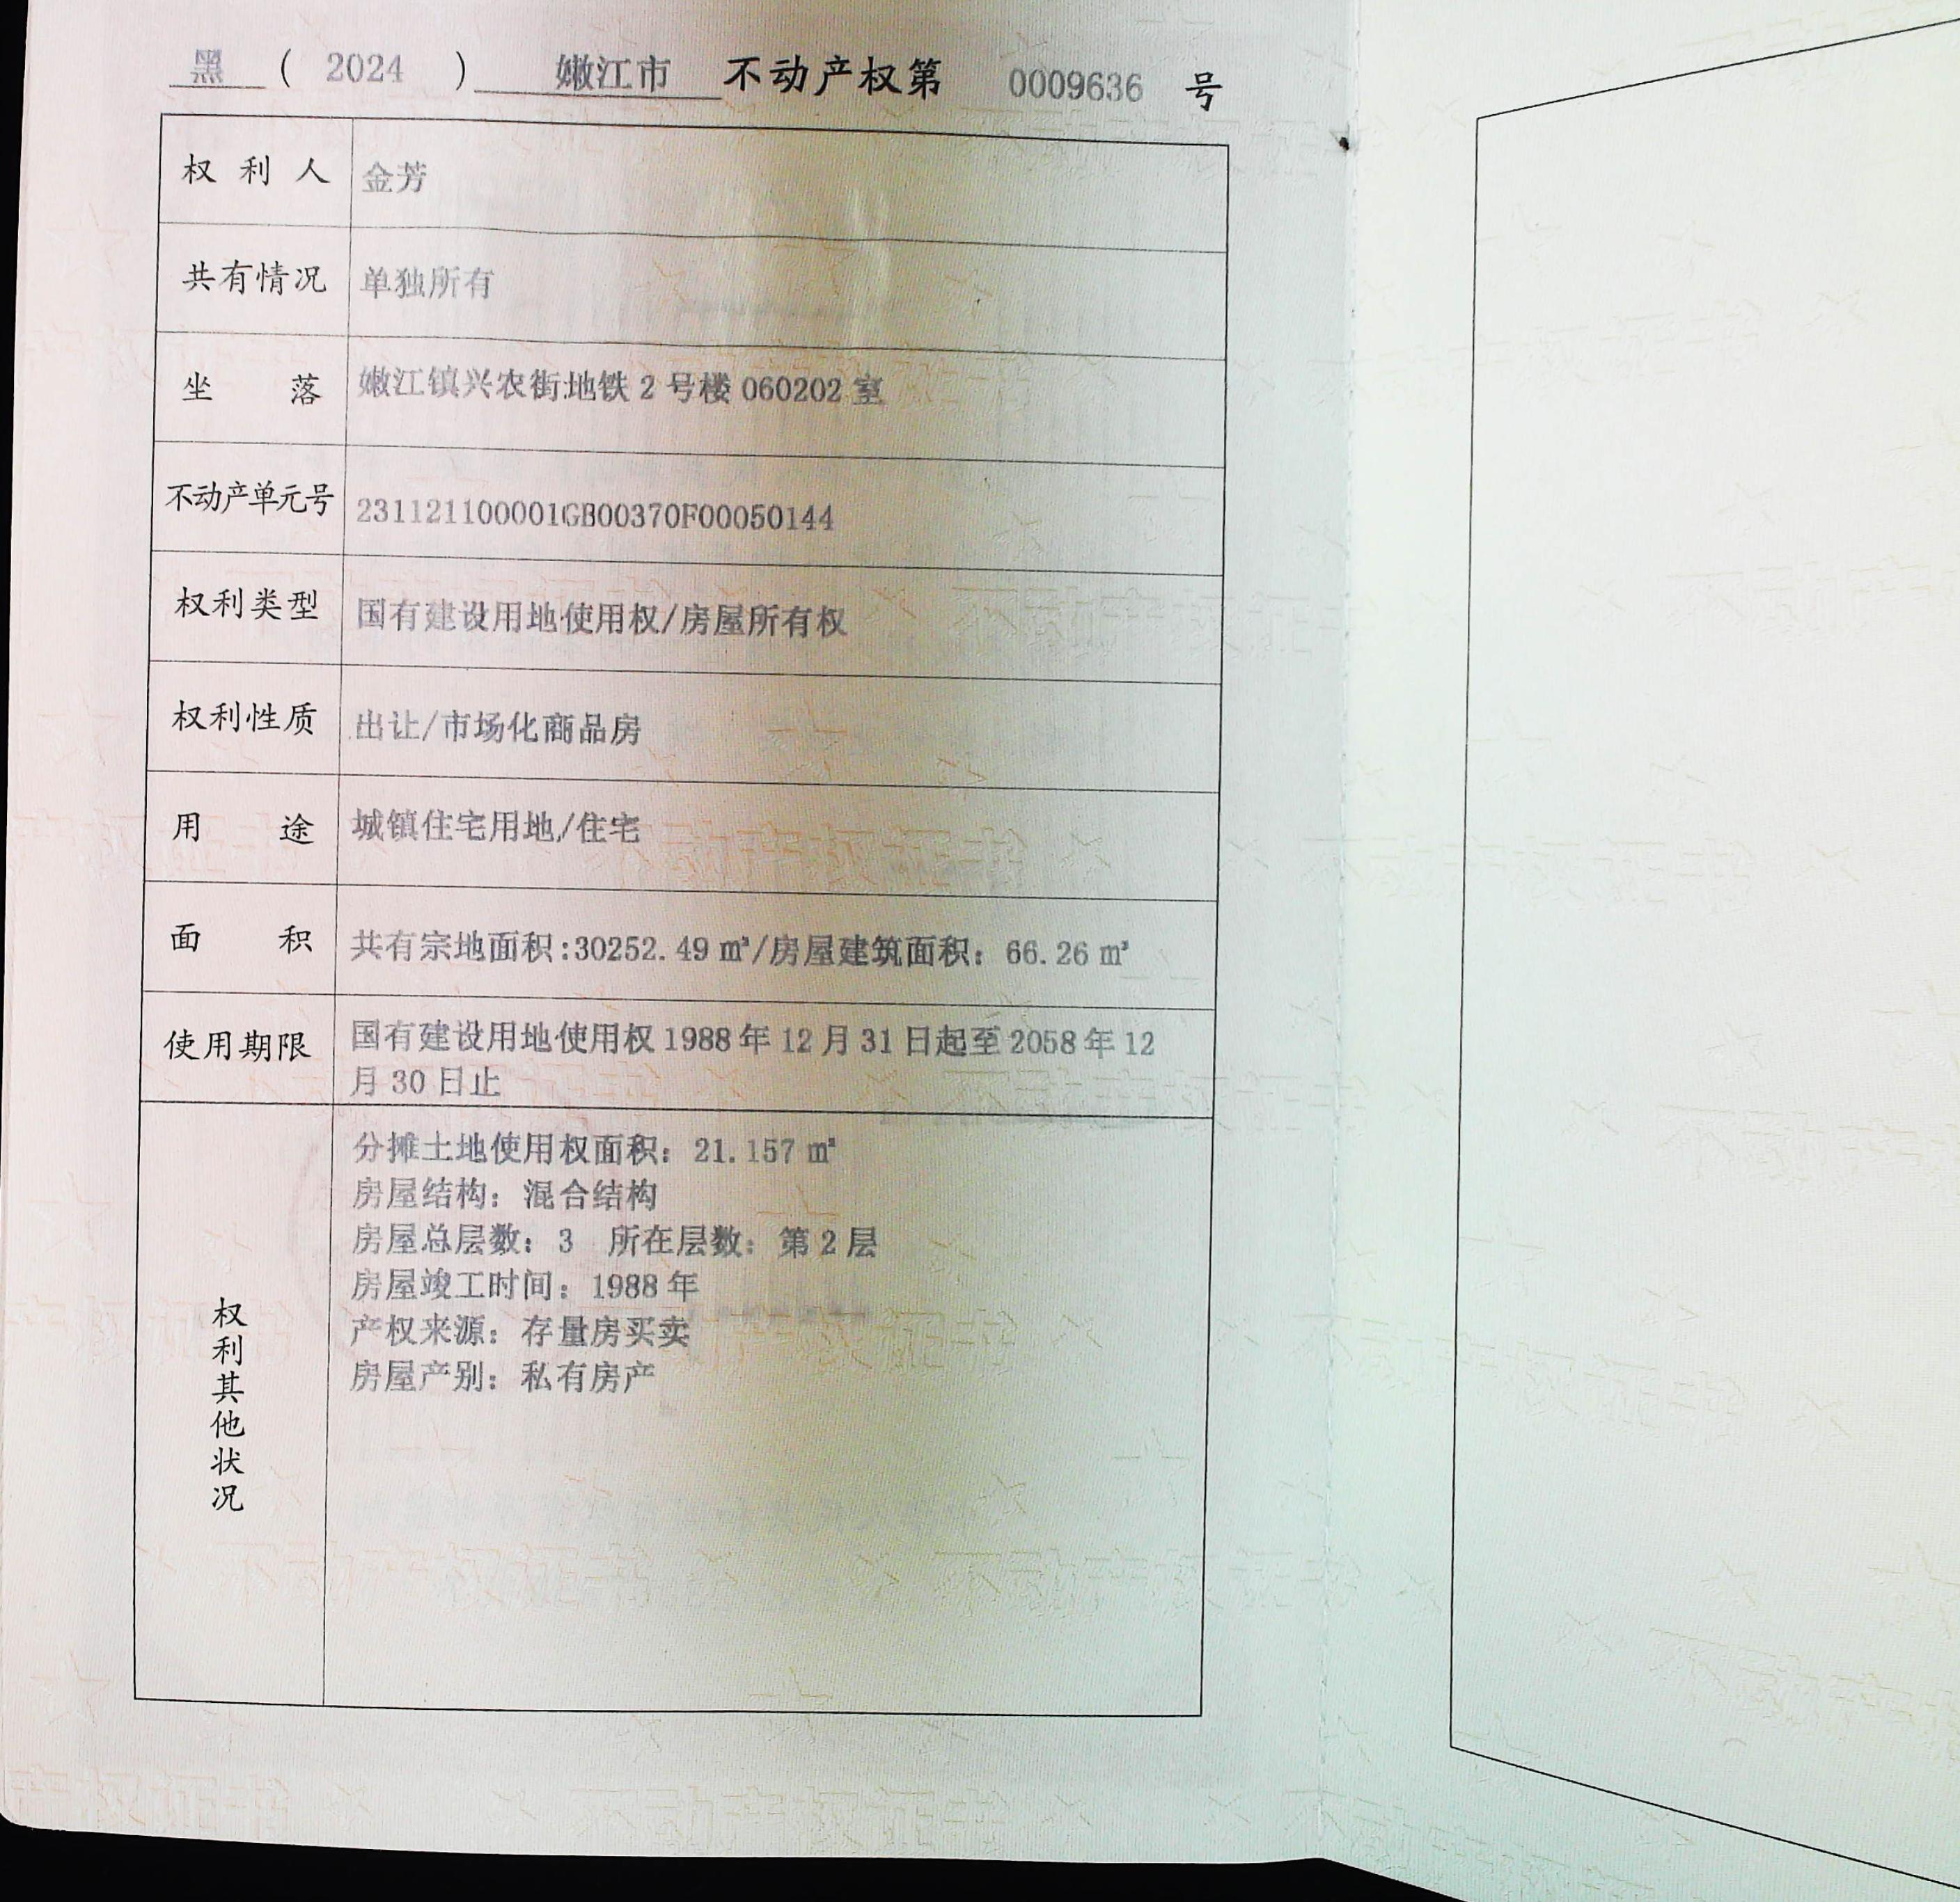 黑 ( 2024 ) 嫩江市 不动产权第 0009636 号
权利人 金芳
共有情况 单独所有
坐落 嫩江镇兴农街地铁 2 号楼 060202 室
不动产单元号 231121100001GB00370F00050144
权利类型 国有建设用地使用权/房屋所有权
权利性质 出让/市场化商品房
用途 城镇住宅用地/住宅
面积 共有宗地面积:30252.49 ㎡/房屋建筑面积: 66.26 ㎡
使用期限 国有建设用地使用权 1988 年 12 月 31 日起至 2058 年 12
月 30 日止
权利其他状况
分摊土地使用权面积: 21.157 ㎡
房屋结构: 混合结构
房屋总层数: 3 所在层数: 第 2 层
房屋竣工时间: 1988 年
产权来源: 存量房买卖
房屋产别: 私有房产